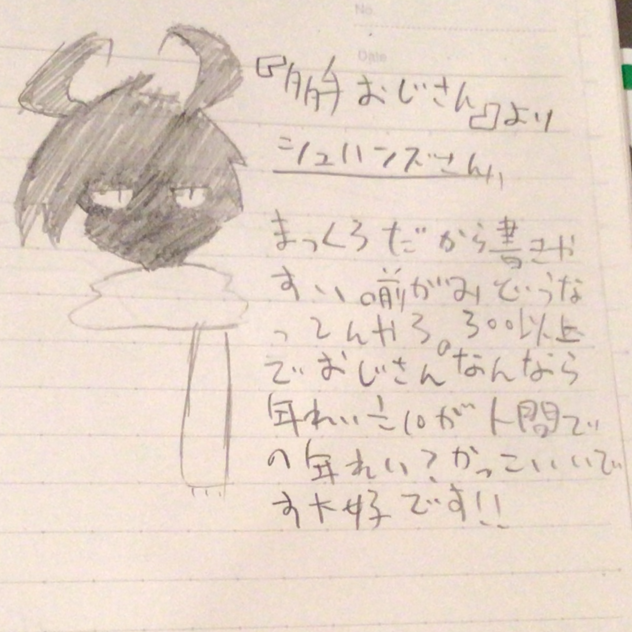 No.
Date
『多解おじさん』より
シュハンズさん
まっくろだから書きや
すい。前がみどうな
ってんやろ。300以上
でおじさん。なんなら
年れい÷10が人間で
の年れい?かっこいいで
す大好です!!